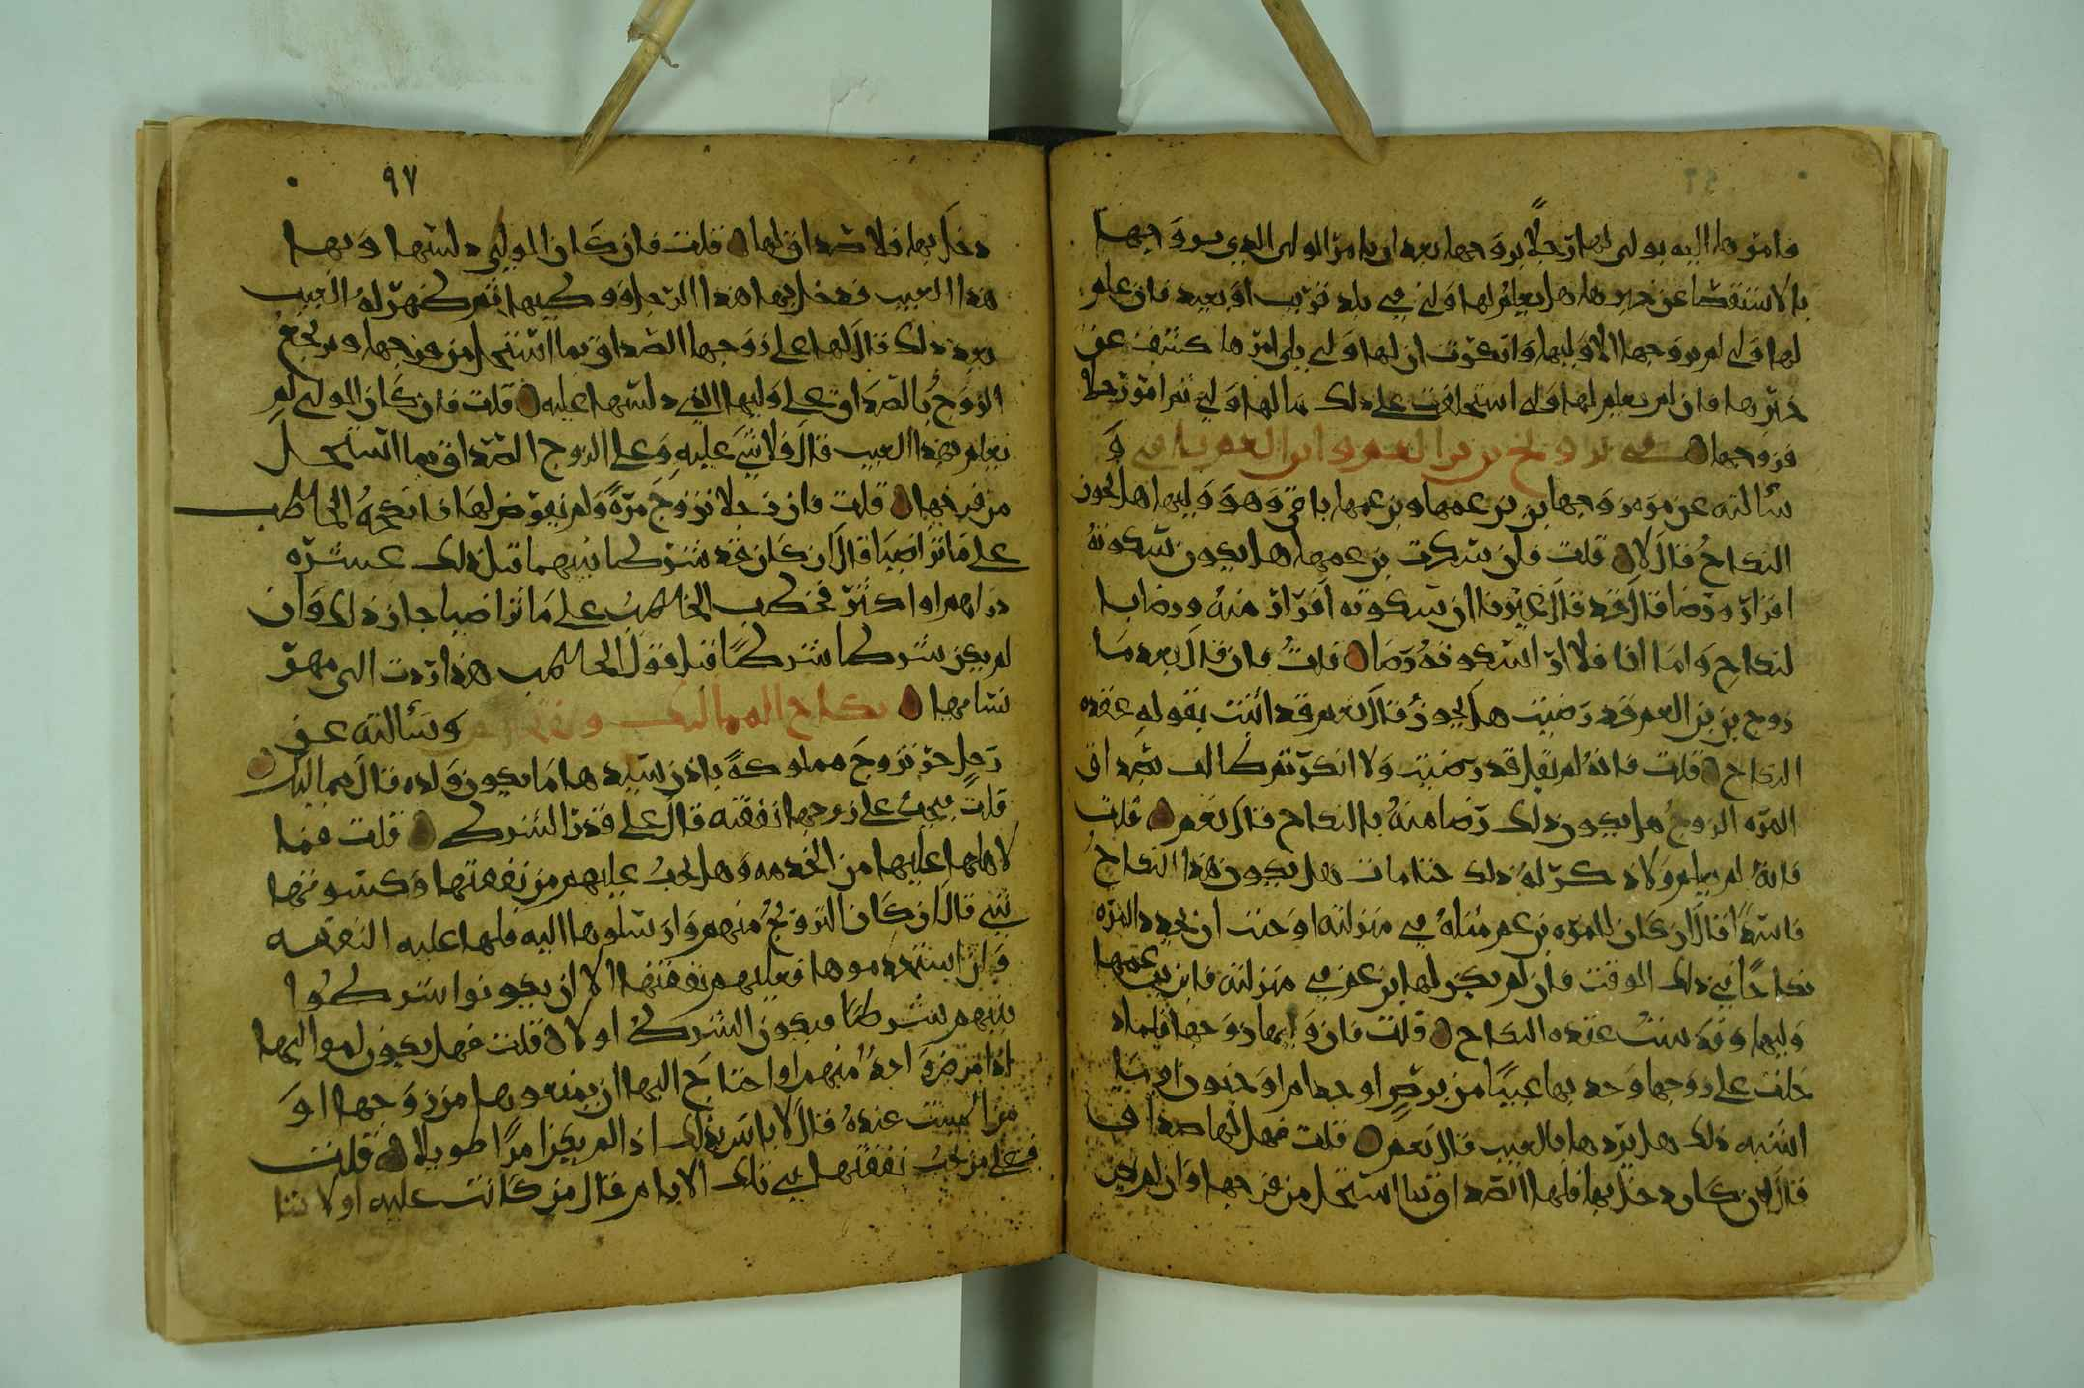 فامرها اليه يولى لها رجلا يزوجها بعد ان يامر المولى الذي يزوجها
بالاستقصا عن خبرها هل يعلم لها ولي في بلد قريب او بعيد فان علم
لها ولي لم يزوجها الا وليها وان عرف ان لها ولي يلي امرها كشف عن
خبرها فان لم يعلم لها ولي استحلفت على ذلك ما لها ولي ثم امر رجلا
فزوجها في تزويج بن بن العم وابن العم باقي و
سألته عن مره زوجها بن بن عمها وبن عمها باقي وهو وليها هل يجوز
النكاح قال لا قلت فان سكت بن عمها هل يكون سكوته
اقرار ورضا قال قد قال غيرنا ان سكوته اقرار منه ورضا با
لنكاح واما انا فلا ارا سكوته رضا قلت فان قال بعد ما
زوج بن بن العم قد رضيت هل يجوز قال نعم قد اثبت بقوله عقده
النكاح قلت فانه لم يقل قد رضيت ولا انكر ثم طالب بصداق
المره الزوج هل يكون ذلك رضا منه بالنكاح قال نعم قلت
فانه لم يعلم ولا ذكر له ذلك حتا مات هل يكون هذا النكاح
فاسدا قال ان كان للمره بن عم مثله في منزلته اوجبت ان يجدد المره
نكاحا في ذلك الوقت فان لم يكن لها بن عم في منزلته فابن بن عمها
وليها وقد ثبت عقده النكاح قلت فان وليها زوجها فلما د
خلت على زوجها وجد بها عيبا من برص او جذام او جنون او ما
اشبه ذلك هل يردها بالعيب قال نعم قلت فهل لها صداق
قال ان كان دخل بها فلها الصداق بما استحل من فرجها وان لم يكن
٩٧
دخل بها فلا صداق لها قلت فان كان الولي دلسها وبها
هذا العيب فدخل بها هذا الرجل ووطيها ثم ظهر له العيب
بعد ذلك قال لها على زوجها الصداق بما استحل من فرجها ويرجع
الزوج بالصداق على وليها الذي دلسها عليه قلت فان كان الولي لم
يعلم بهذا العيب قال فلا شي عليه وعلى الزوج الصداق بما استحل
من فرجها قلت فان رجلا تزوج مره ولم يفرض لها فانكحه الخاطب
على ما تراضيا قال ان كان قد شرط بينهما قبل ذلك عشره
دراهم او اكثر فخطب الخاطب على ما تراضيا جاز ذلك وان
لم يكن شرطا شرطا قبل قول الخاطب هذا ردت الى مهر
نسايها نكاح المماليك وسألته عن
رجل حر تزوج مملوكة باذن سيدها ما يكون ولده قال مماليك
قلت يجب على زوجها نفقته قال على قدر الشرط قلت فما
لاهلها عليها من الخدمه وهل يجب عليهم من نفقتها وكسوتها
شي قال ان كان التزويج منهم وارسلوها اليه فلها عليه النفقه
وان استخدموها فعليهم نفقتها الا ان يكونوا شرطوا
بينهم شرطا فيكون الشرط اولا قلت فهل يكون لمواليها
اذا مرض واحد منهم او احتاج اليها ان يمنعوها من زوجها او
من المبيت عنده قال لا باس بذلك اذا لم يكن امرا طويلا قلت
فعلى من يجب نفقتها في تلك الايام قال من كانت عليه اولا